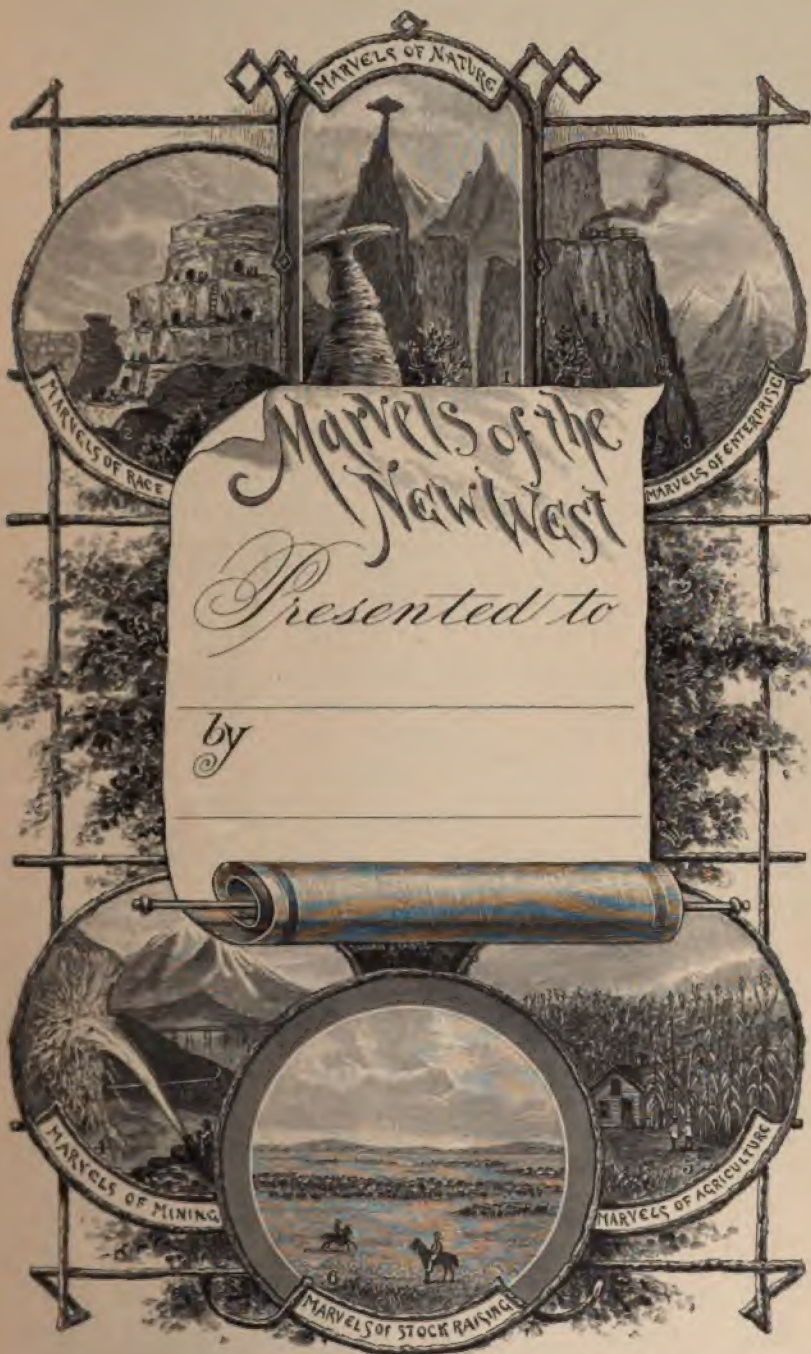 MARVELS OF NATURE
MARVELS OF RACE
MARVELS OF ENTERPRISE
1
2
3
Marvels of the
New West
Presented to
by
MARVELS OF MINING
4
MARVELS OF AGRICULTURE
5
6
MARVELS OF STOCK RAISING